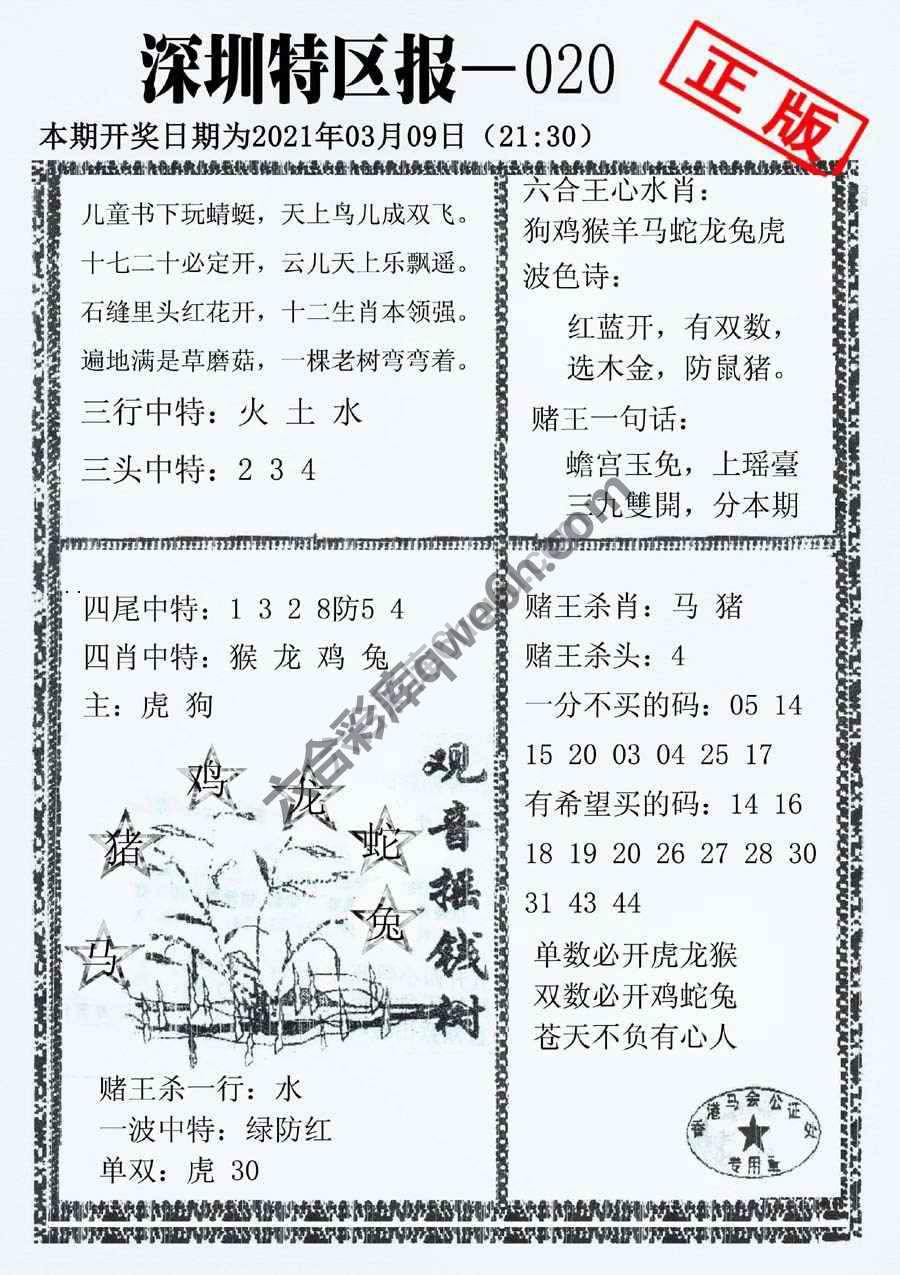 深圳特区报—020
正版
本期开奖日期为2021年03月09日（21:30）
儿童书下玩蜻蜓，天上鸟儿成双飞。
十七二十必定开，云儿天上乐飘遥。
石缝里头红花开，十二生肖本领强。
遍地满是草磨菇，一棵老树弯弯着。
三行中特：火 土 水
三头中特：2 3 4
六合王心水肖：
狗鸡猴羊马蛇龙兔虎
波色诗：
红蓝开，有双数，
选木金，防鼠猪。
赌王一句话：
蟾宫玉免，上瑶臺
三九雙開，分本期
四尾中特：1 3 2 8防5 4
四肖中特：猴 龙 鸡 兔
主：虎 狗
鸡
龙
猪
蛇
兔
马
观音摇钱树
赌王杀一行：水
一波中特：绿防红
单双：虎 30
赌王杀肖：马 猪
赌王杀头：4
一分不买的码：05 14
15 20 03 04 25 17
有希望买的码：14 16
18 19 20 26 27 28 30
31 43 44
单数必开虎龙猴
双数必开鸡蛇兔
苍天不负有心人
香港马会公证处
专用章
六合彩库qwe6h.com